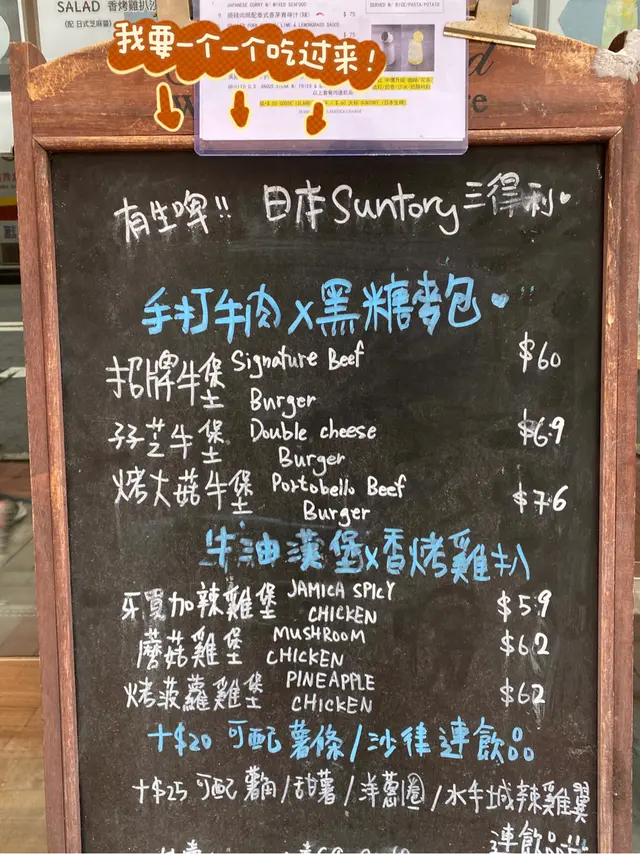 SALAD 香烤雞扒沙
(配 日式芝麻醬)
JAPANESE CURRY W/ MIXED SEAFOOD
SERVED W/ RICE/PASTA/POTATO
我要一个一个吃过来！
有生啤!! 日本Suntory三得利♥
手打牛肉 x 黑糖麥包♥
招牌牛堡 Signature Beef Burger $60
孖芝牛堡 Double cheese Burger $69
烤大菇牛堡 Portobello Beef Burger $76
牛油漢堡x香烤雞扒
牙買加辣雞堡 JAMICA SPICY CHICKEN $59
蘑菇雞堡 MUSHROOM CHICKEN $62
烤菠蘿雞堡 PINEAPPLE CHICKEN $62
+$20 可配 薯條/沙律 連飲品
+$25 可配 薯角/甜薯/洋蔥圈/水牛城辣雞翼
連飲品!!!